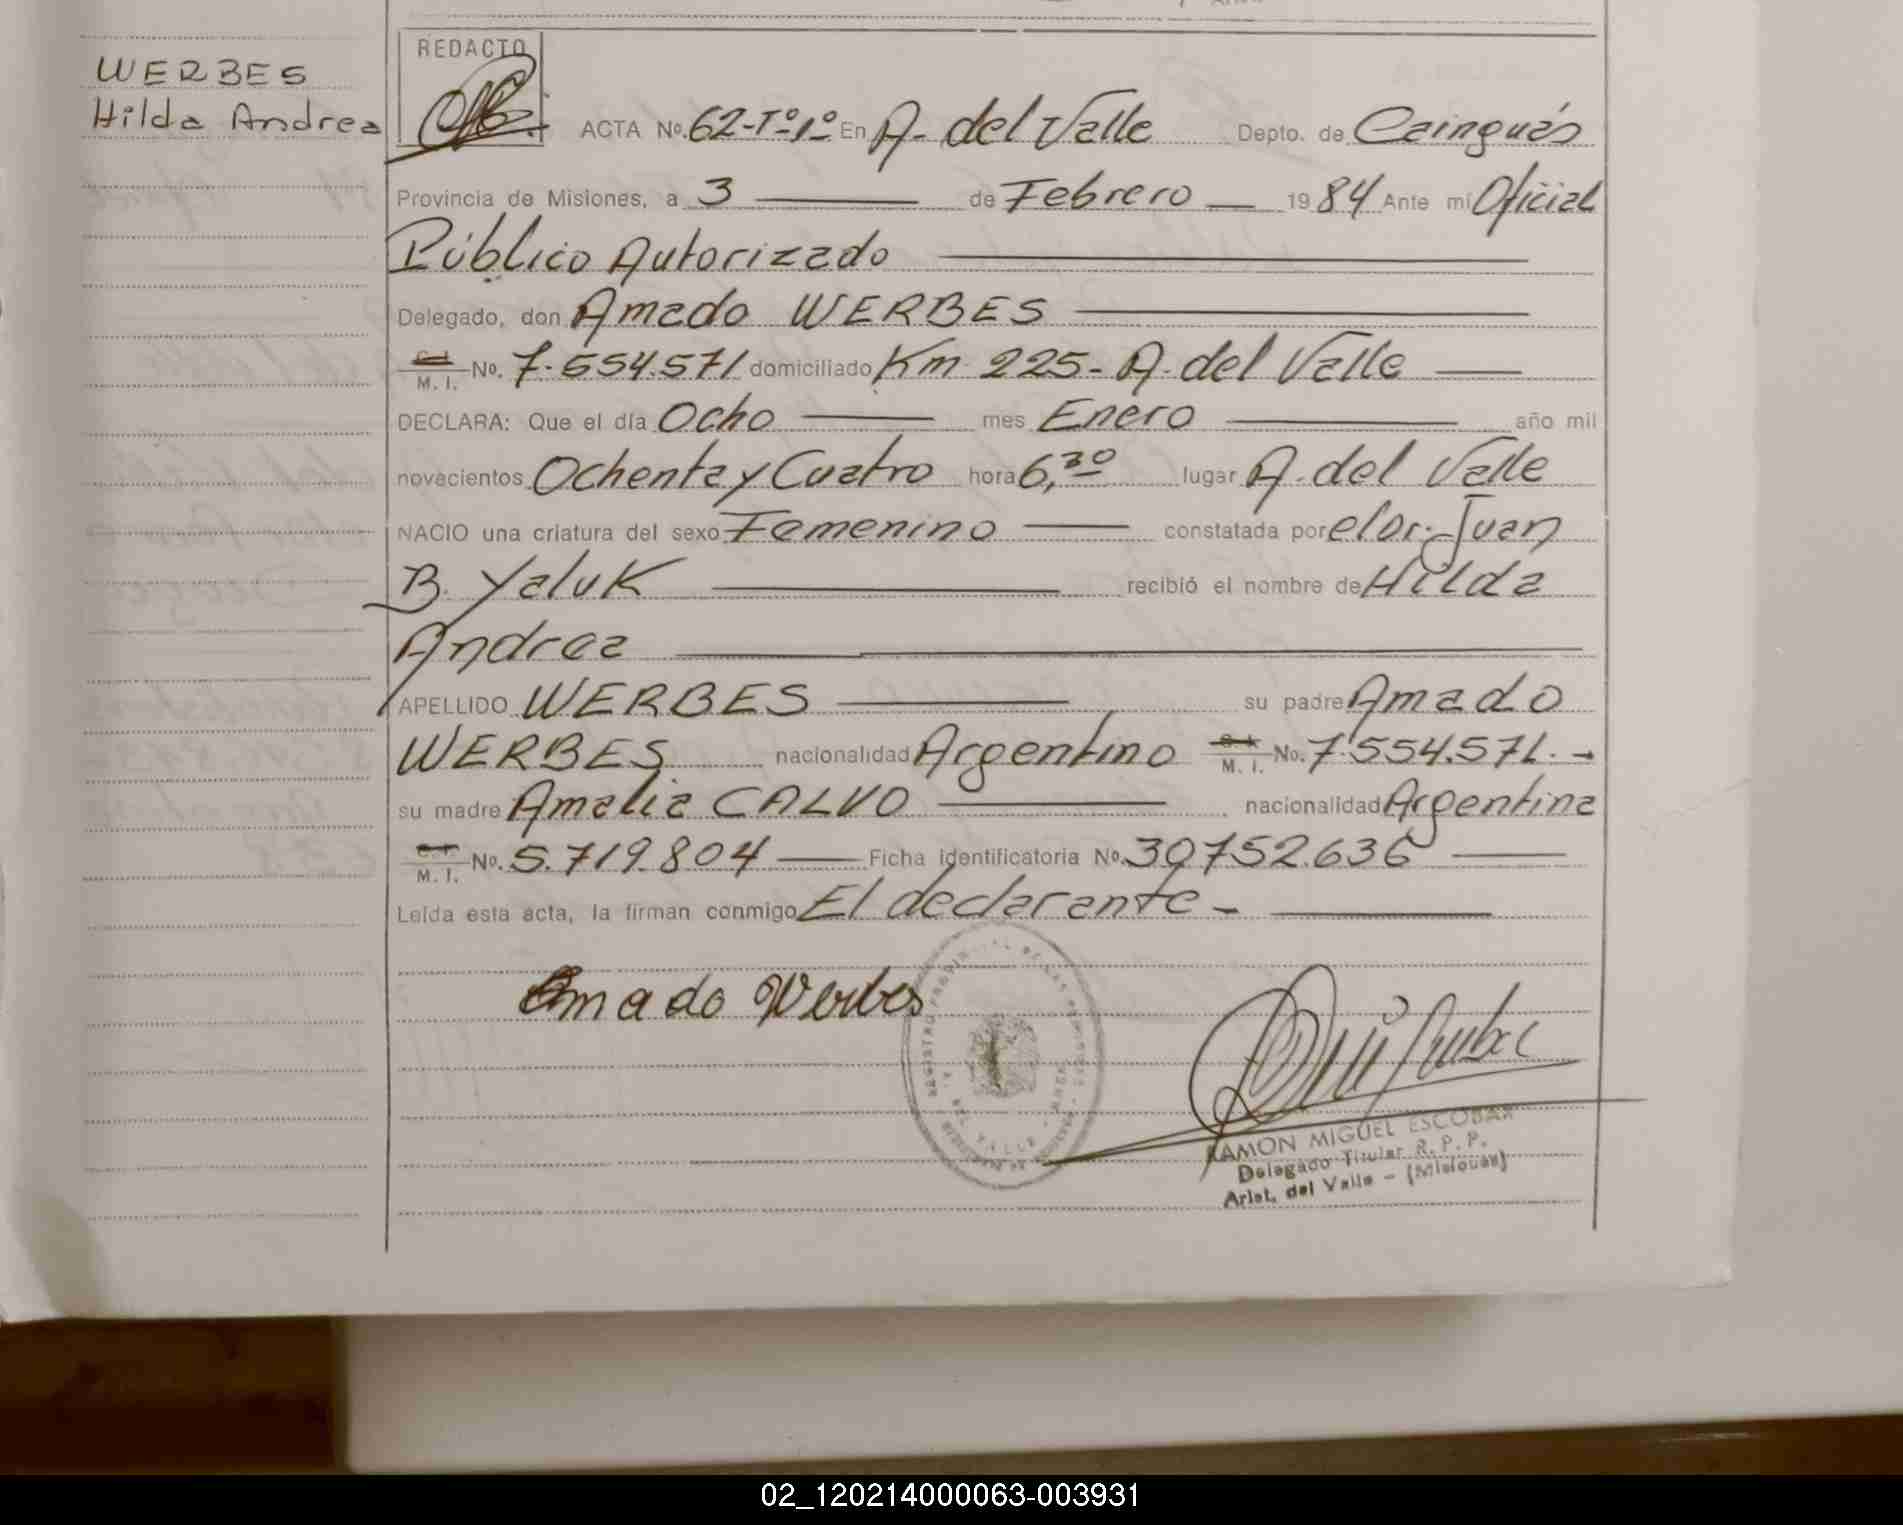 WERBES
Hilda Andrea
REDACTO
ACTA Nº 62-Tº-1º En A. del Valle Depto. de Cainguás
Provincia de Misiones, a 3 de Febrero 1984 Ante mí Oficial
Público Autorizado
Delegado, don Amado WERBES
C.I. M. I. Nº. 7.554.571 domiciliado Km 225- A. del Valle
DECLARA: Que el día Ocho mes Enero año mil
novecientos Ochenta y Cuatro hora 6,30 lugar A. del Valle
NACIO una criatura del sexo Femenino constatada por el Dr. Juan
B. Yaluk recibió el nombre de Hilda
Andrea
APELLIDO WERBES su padre Amado
WERBES nacionalidad Argentino C.I. M. I. No. 7.554.571.-
su madre Amalia CALVO nacionalidad Argentina
C.I. M. I. Nº. 5.719.804 Ficha identificatoria Nº. 30752.636
Leída esta acta, la firman conmigo El declarante -
Amado Werbes
RAMON MIGUEL ESCOBAR
Delegado Titular R. P. P.
Arist. del Valle - (Misiones)
02_120214000063-003931